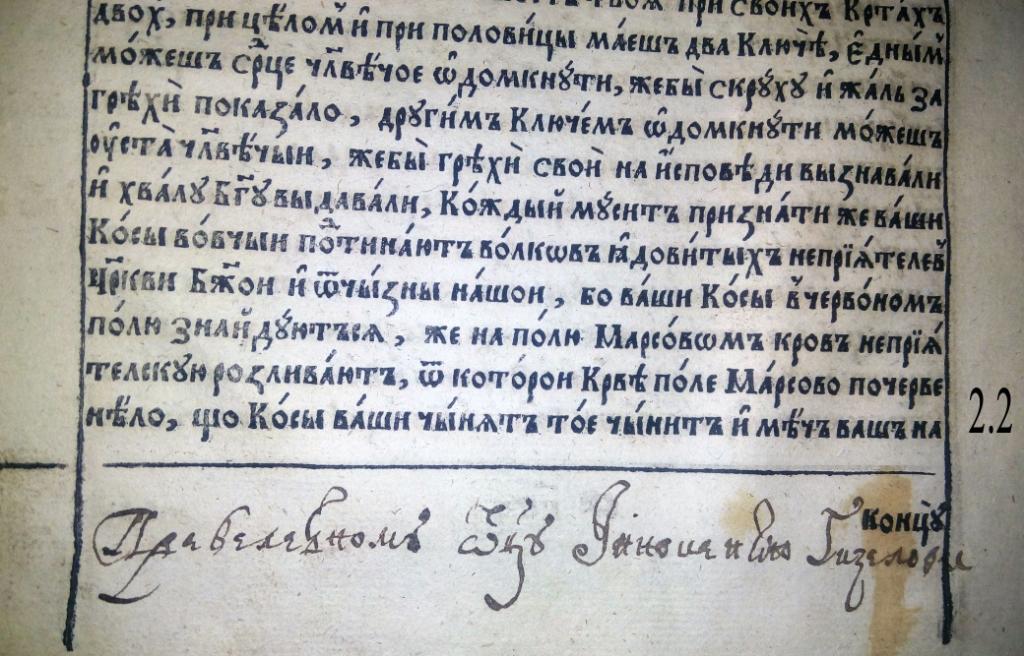 твоѧ при своихъ Кртахъ
двох, при цѣлом̾ и҆ при полови́цы ма́ешъ два Ключѣ̀, є҆дны́м̾
мо́жешъ ср҃це чл҃вѣ́чое ѿдомкну́ти, жебы̀ скру́ху и҆ жа́ль за
грѣхѝ показа́ло, други́мъ Ключе́мъ ѿдомкну́ти мо́жешъ
ꙋ҆ста̀ чл҃вѣ́чыи, жебы̀ грѣхѝ своѝ на и҆́сповѣди вызнава́ли
и҆ хва́лу Бг҃у выдава́ли, Ко́ждый му́ситъ призна́ти же ва́ши
Ко́сы во́вчыи поⷣтина́ютъ во́лкѡвъ ꙗ҆дови́тыхъ непрїѧ́телеѵ
Цр҃кви Бж҃ои и҆ ѿчы́зны на́шои, бо ва́ши Ко́сы в̾ черво́номъ
по́лю знайду́ютьсѧ, же на по́лю Марсо́вѡмъ кровъ непрїѧ́
телскую розлива́ютъ, ѿ кото́рои Крвѣ по́ле Ма́рсово почерве
нѣ́ло, що Ко́сы ва́ши чы́нѧтъ то́е чы́нитъ и҆ мѣ́чъ вашъ на
концу̀
ѿцу Іннокаентїю Гизелови
2.2